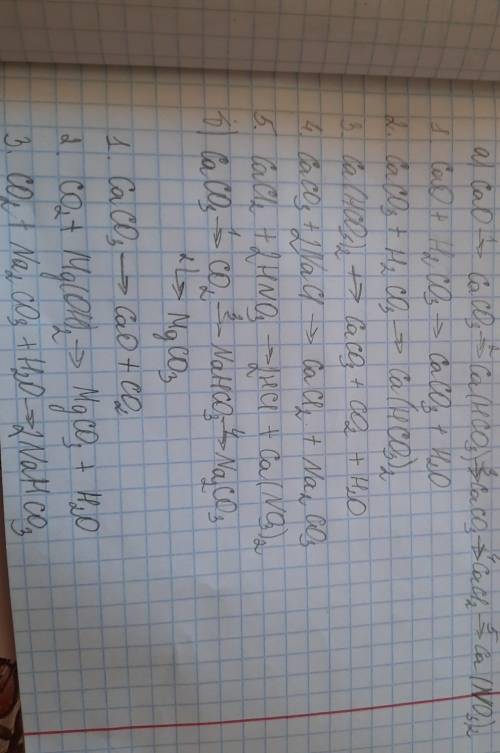 a) CaO → CaCO₃ →² Ca(HCO₃)₂ →³ CaCO₃ →⁴ CaCl₂ →⁵ Ca(NO₃)₂
1. CaO + H₂CO₃ → CaCO₃ + H₂O
2. CaCO₃ + H₂CO₃ → Ca(HCO₃)₂
3. Ca(HCO₃)₂ → CaCO₃ + CO₂ + H₂O
4. CaCO₃ + 2NaCl → CaCl₂ + Na₂CO₃
5. CaCl₂ + 2HNO₃ → 2HCl + Ca(NO₃)₂
b) CaCO₃ →¹ CO₂ →³ NaHCO₃ →⁴ Na₂CO₃
2 ↳ MgCO₃
1. CaCO₃ → CaO + CO₂
2. CO₂ + Mg(OH)₂ → MgCO₃ + H₂O
3. CO₂ + Na₂CO₃ + H₂O → 2NaHCO₃